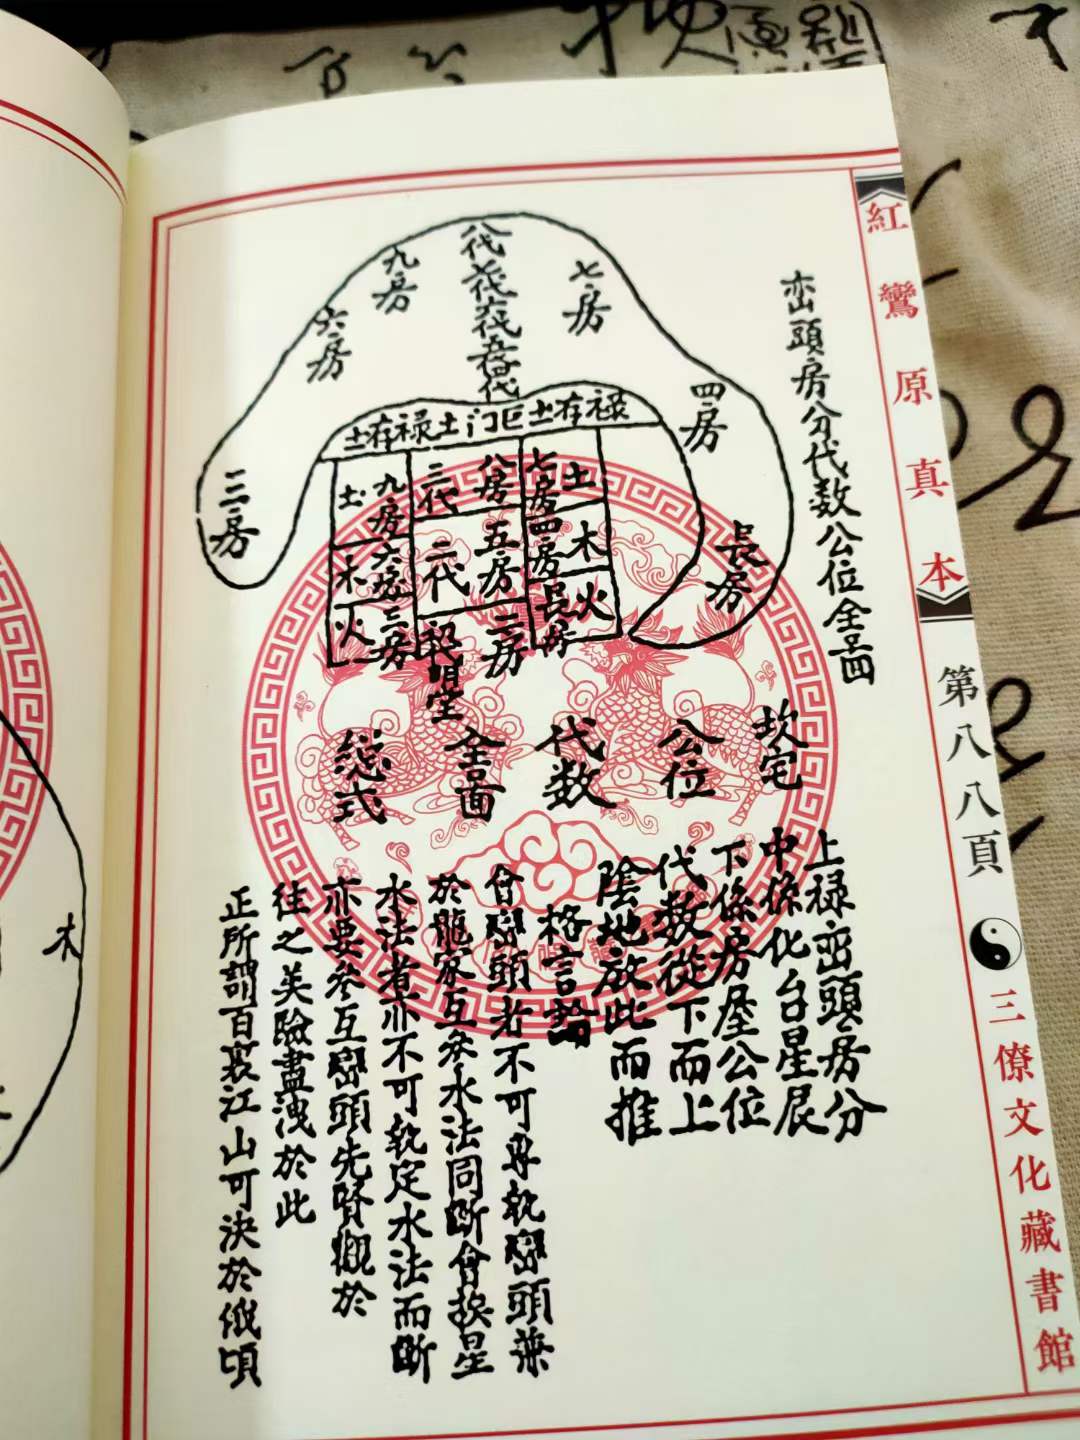 紅鸞原真本
第八八頁
三僚文化藏書館
峦頭房分代数公位全局
八代七代六代五代四代
九房
六房
三房
七房
四房
長房
禄存土
巨门土
禄存土
七房四房長房
土木火
八房五房二房
三代
二代
一代明堂
九房六房三房
土木火
坎宅
公位
代数
全局
总式
上禄峦頭房分
中係化台星辰
下係房屋公位
代数從下而上
陰地放此而推
格言論
會巒頭者不可専執巒頭兼
於龍家互参水法同斷會挨星
水法者亦不可執定水法而斷
亦要参互巒頭先賢觀於
往之美險盡洩於此
正所謂百裏江山可決於俄頃
木